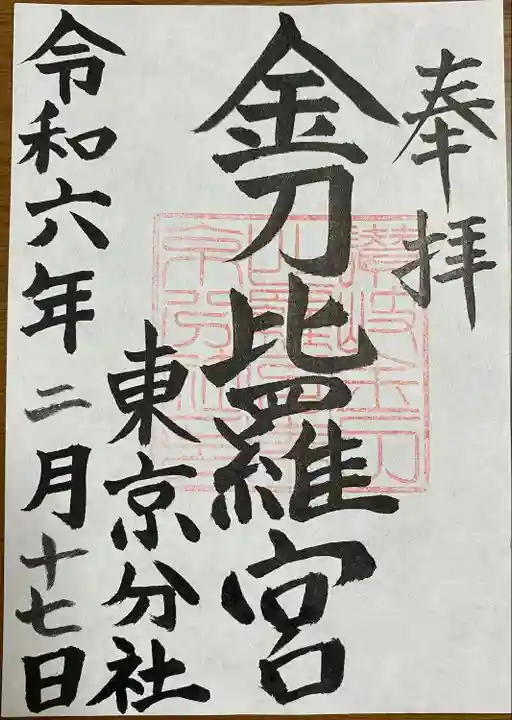 奉拝
金刀比羅宮
東京分社
令和六年二月十七日